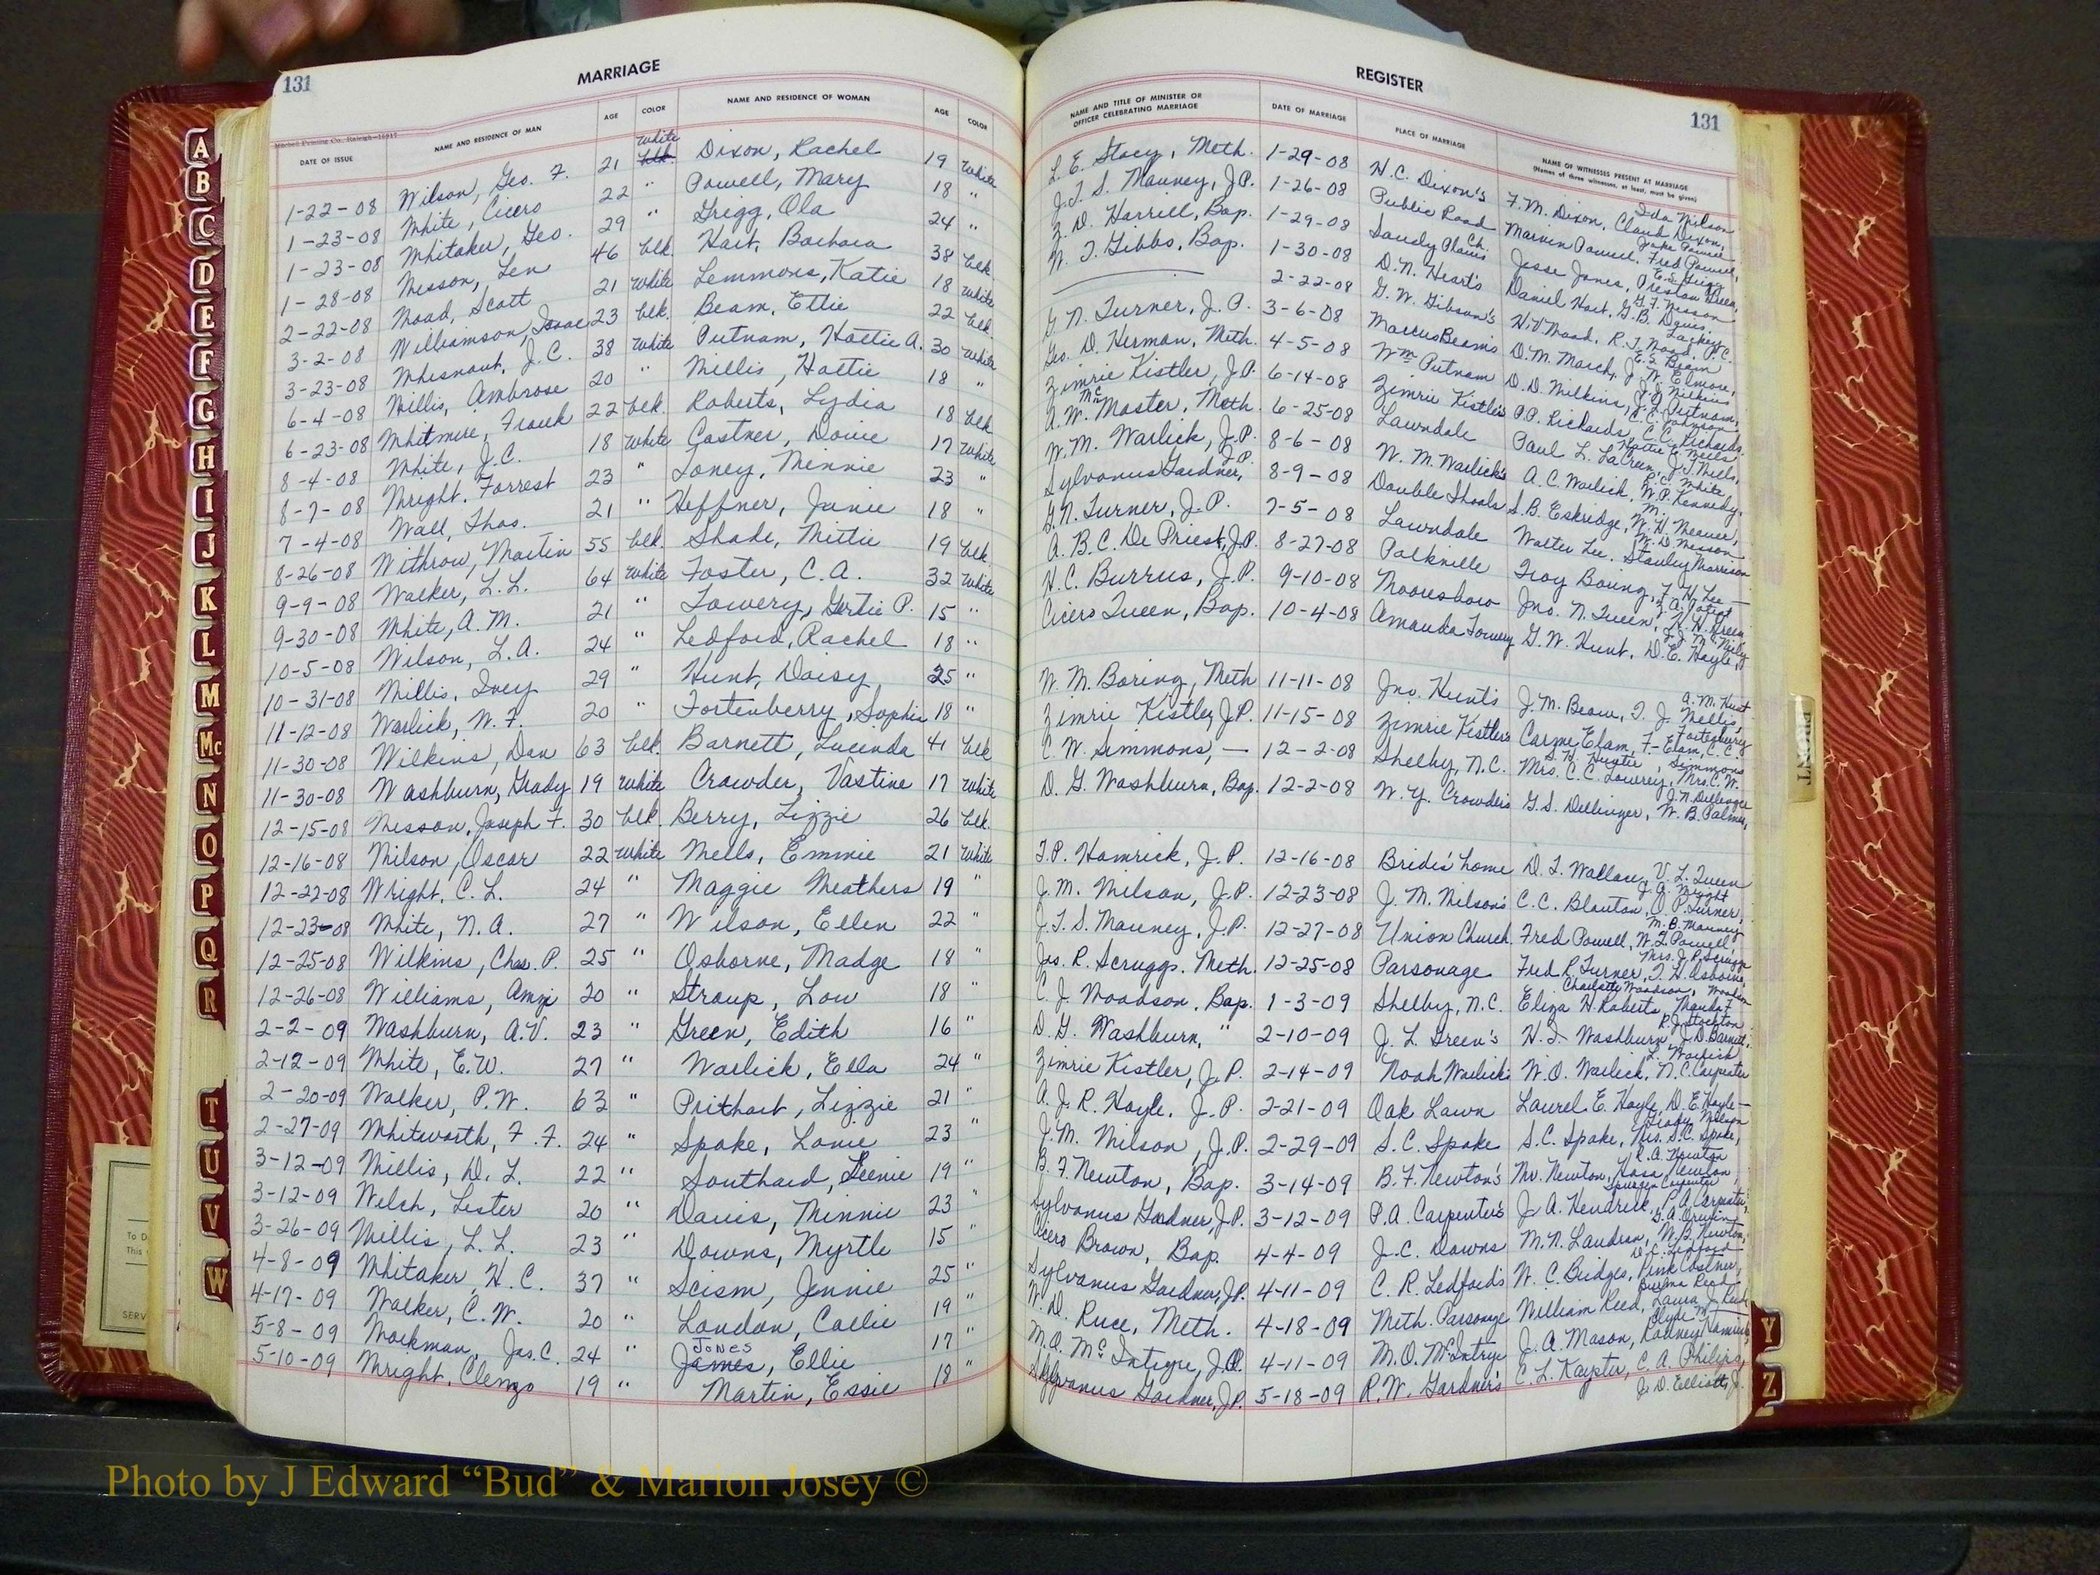 131 MARRIAGE
Mitchell Printing Co., Raleigh
DATE OF ISSUE NAME AND RESIDENCE OF MAN AGE COLOR NAME AND RESIDENCE OF WOMAN AGE COLOR
1-22-08 Wilson, Geo. F. 21 white blk. Dixon, Rachel 19 white
1-23-08 White, Cicero 22 " Powell, Mary 18 "
1-23-08 Whitaker, Geo. 29 " Grigg, Ola 24 "
1-28-08 Wesson, Len 46 blk. Hart, Barbara 38 blk.
2-22-08 Wood, Scott 21 white Lemmons, Katie 18 white
3-2-08 Williamson, Isaac 23 blk. Beam, Ettie 22 blk.
3-23-08 Whisnant, J. C. 38 white Putnam, Hattie A. 30 white
6-4-08 Willis, Ambrose 20 " Willis, Hattie 18 "
6-23-08 Whitmire, Frank 22 blk. Roberts, Lydia 18 blk.
8-4-08 White, J.C. 18 white Costner, Dovie 17 white
8-7-08 Wright, Forrest 23 " Toney, Minnie 23 "
7-4-08 Wall, Thos. 21 " Heffner, Janie 18 "
8-26-08 Withrow, Martin 55 blk. Shade, Mittie 19 blk.
9-9-08 Walker, L.L. 64 white Foster, C.A. 32 white
9-30-08 White, A.M. 21 " Towery, Gertie P. 15 "
10-5-08 Wilson, L.A. 24 " Ledford, Rachel 18 "
10-31-08 Willis, Ivey 29 " Hunt, Daisy 25 "
11-12-08 Warlick, W.F. 20 " Fortenberry, Sophia 18 "
11-30-08 Wilkins, Dan 63 blk. Barnett, Lucinda 41 blk.
11-30-08 Washburn, Grady 19 white Crowder, Vastine 17 white
12-15-08 Wesson, Joseph F. 30 blk. Berry, Lizzie 26 blk.
12-16-08 Wilson, Oscar 22 white Wells, Emmie 21 white
12-22-08 Wright, C.L. 24 " Maggie Weathers 19 "
12-23-08 White, N.A. 27 " Wilson, Ellen 22 "
12-25-08 Wilkins, Chas. P. 25 " Osborne, Madge 18 "
12-26-08 Williams, Amzi 20 " Stroup, Lou 18 "
2-2-09 Washburn, A.V. 23 " Green, Edith 16 "
2-12-09 White, E.W. 27 " Warlick, Ella 24 "
2-20-09 Walker, P.W. 63 " Prithart, Lizzie 21 "
2-27-09 Whitworth, F.F. 24 " Spake, Lonie 23 "
3-12-09 Willis, D.L. 22 " Southard, 19 "
3-12-09 Welch, Lester 20 " Davis, Minnie 23 "
3-26-09 Willis, L.L. 23 " Downs, Myrtle 15 "
4-8-09 Whitaker, H.C. 37 " Scism, Jennie 25 "
4-17-09 Walker, C.W. 20 " London, Callie 19 "
5-8-09 Workman, Jas. C. 24 " James, Jones Ellie 17 "
5-10-09 Wright, Clenzo 19 " Martin, Essie 18 "
REGISTER 131
NAME AND TITLE OF MINISTER OR OFFICER CELEBRATING MARRIAGE DATE OF MARRIAGE PLACE OF MARRIAGE NAME OF WITNESSES PRESENT AT MARRIAGE
(Names of three witnesses, at least, must be given)
L. E. Stacy, Meth. 1-29-08 H.C. Dixon's F.M. Dixon, Claud Dixon, Ida Wilson
J.T.S. Mauney, J.P. 1-26-08 Public Road Marvin Powell, Fred Powell,
Z. D. Harrill, Bap. 1-29-08 Sandy Plains Ch. Jesse Jones, Preston Green,
W. T. Gibbs, Bap. 1-30-08 D.N. Heart's Daniel Hart, G.B. Davis,
2-22-08 G.W. Gibson's
G. N. Turner, J.P. 3-6-08 Marcus Beam's
Geo. D. Herman, Meth. 4-5-08 Wm Putnam D.D. Wilkins,
Zimrie Kistler, J.P. 6-14-08 Zimrie Kistler's P.P. Richards, C.C. Richards
A.W. McMaster, Meth. 6-25-08 Lawndale Paul L.
W.M. Warlick, J.P. 8-6-08 W.M. Warlick's A.C. Warlick, W.P. Kennedy,
Sylvanus Gardner, J.P. 8-9-08 Double Shoals S.B. Eskridge, W.H. Weaver,
G.N. Turner, J.P. 7-5-08 Lawndale Walter Lee, Stanley Morrison
A.B.C. De Priest, J.P. 8-27-08 Polkville F.H. Lee
H.C. Burrus, J.P. 9-10-08 Mooresboro Jno. N. Tueen,
Cicero Tueen, Bap. 10-4-08 Amanda Towery G.W. Hunt, D.E. Hoyle,
W.M. Boring, Meth 11-11-08 Jno. Hunt's J.M. Beam, T.J. Willis, A.M. Hunt
Zimrie Kistler J.P. 11-15-08 Zimrie Kistler's Carme Elam, F. Elam, C.C. Fortenberry
C.W. Simmons, — 12-2-08 Shelby, N.C. Mrs. C.C. Lowrey, Mrs. C.W. Simmons
D. G. Washburn, Bap. 12-2-08 W.Y. Crowder's G.S. Dellinger, W.B. Palmer, J.N. Dellinger
T.P. Hamrick, J.P. 12-16-08 Bride's home D.T. Wallace, V.L. Tueen
J.M. Wilson, J.P. 12-23-08 J.M. Wilson's C.C. Blanton, O.P. Turner, J.A. Wright
J.T.S. Mauney, J.P. 12-27-08 Union Church Fred Powell, W.L. Powell, M.B. Mauney
Jas. R. Scruggs, Meth. 12-25-08 Parsonage Fred R. Turner, T.H. Osborne, Mrs. J.R. Scruggs
C. J. Woodson, Bap. 1-3-09 Shelby, N.C. Eliza H. Roberts, Charlotte Woodson,
D. G. Washburn, " 2-10-09 J.L. Green's H.T. Washburn, J.D. Barnett, R.J. Stockton
Zimrie Kistler, J.P. 2-14-09 Noah Warlick's W.O. Warlick, N.C. Carpenter
A.J.R. Hoyle, J.P. 2-21-09 Oak Lawn Laurel E. Hoyle, D.E. Hoyle
J.M. Wilson, J.P. 2-29-09 S.C. Spake S.C. Spake, Mrs. S.C. Spake, Grady Wilson
B.F. Newton, Bap. 3-14-09 B.F. Newton's Newton, R.A. Newton
Sylvanus Gardner, J.P. 3-12-09 P.A. Carpenter's J.A. Hendrick, P.A. Carpenter,
Cicero Brown, Bap. 4-4-09 J.C. Downs M.N. Landrum, W.B. Newton,
Sylvanus Gardner, J.P. 4-11-09 C.R. Ledford's W.C. Bridges, Pink Costner,
W.D. Ruce, Meth. 4-18-09 Meth. Parsonage William Reed, Laura J. Reed
M.O. McIntyre, J.P. 4-11-09 M.O. McIntrye J.A. Mason,
Sylvanus Gardner, J.P. 5-18-09 R.W. Gardner's C.L. Kayster, C.A. Philips, J.D. Elliott, Jr.
A
B
C
D
E
F
G
H
I
J
K
L
M
Mc
N
O
P
Q
R
T
U
V
W
Y
Z
FRONT
To D
This
SERV
Photo by J Edward “Bud” & Marion Josey ©